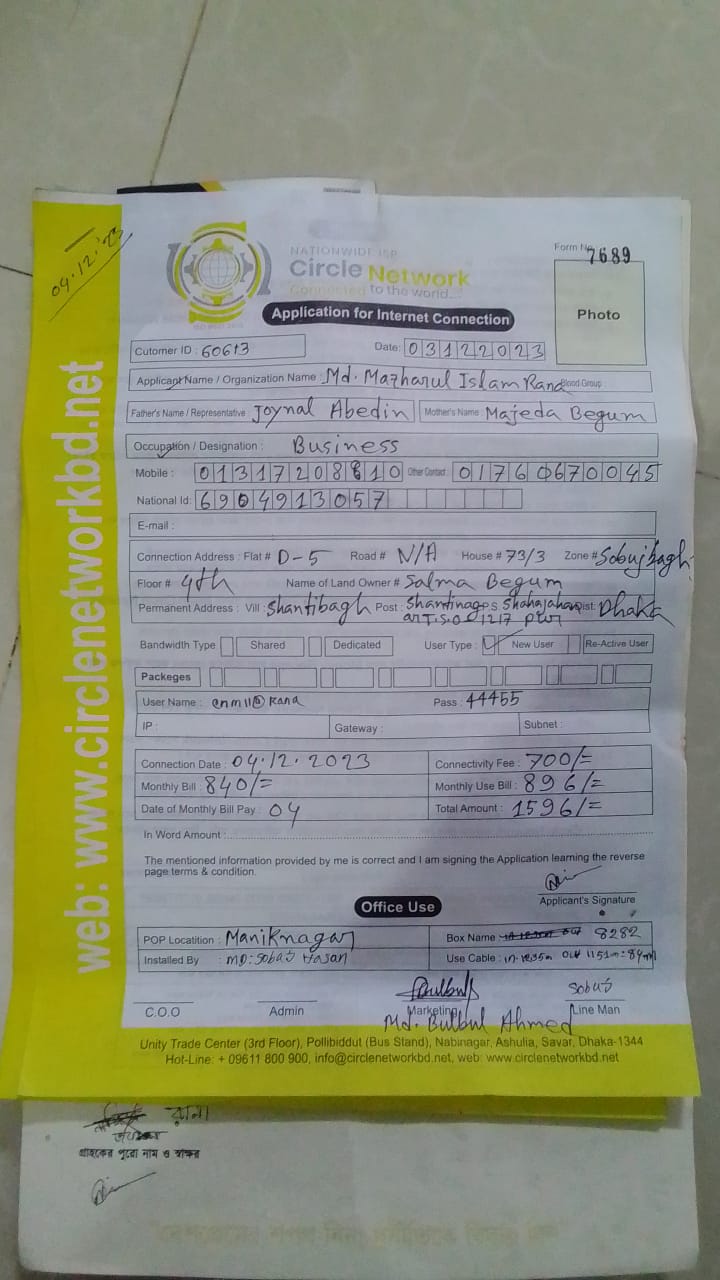 04.12.'23
NATIONWIDE ISP
Circle Network
Connected to the world...
ISO 9001:2015
Form No. 7689
Photo
Application for Internet Connection
Cutomer ID : 60613
Date: 03122023
Applicant Name / Organization Name : Md. Mazharul Islam Rana Blood Group :
Father's Name / Representative : Joynal Abedin Mother's Name : Majeda Begum
Occupation / Designation : Business
Mobile : 01317208810 Other Contact : 01760670045
National Id: 6904913057
E-mail :
Connection Address : Flat # D-5 Road # N/A House # 73/3 Zone # Sobujbagh
Floor # 4th Name of Land Owner # Salma Begum
Permanent Address : Vill : Shantibagh Post : Shantinagar T.S.O 1217 P.S. Shahajahanpur Dist: Dhaka
Bandwidth Type Shared Dedicated User Type : New User Re-Active User
Packeges
User Name : enm11@Rana Pass : 44455
IP : Gateway : Subnet :
Connection Date : 04.12.2023 Connectivity Fee : 700/=
Monthly Bill : 840/= Monthly Use Bill : 896/=
Date of Monthly Bill Pay : 04 Total Amount : 1596/=
In Word Amount :
The mentioned information provided by me is correct and I am signing the Application learning the reverse
page terms & condition.
Applicant's Signature
Office Use
POP Locatition : Maniknagar Box Name 8282
Installed By : MD: Sobas Hasan Use Cable : in- 1235m Out 1151m = 84m
Bulbul Sobas
C.O.O Admin Marketing Line Man
Md. Bulbul Ahmed
Unity Trade Center (3rd Floor), Pollibiddut (Bus Stand), Nabinagar, Ashulia, Savar, Dhaka-1344
Hot-Line: + 09611 800 900, info@circlenetworkbd.net, web: www.circlenetworkbd.net
web: www.circlenetworkbd.net
রানা
গ্রাহকের পুরো নাম ও স্বাক্ষর